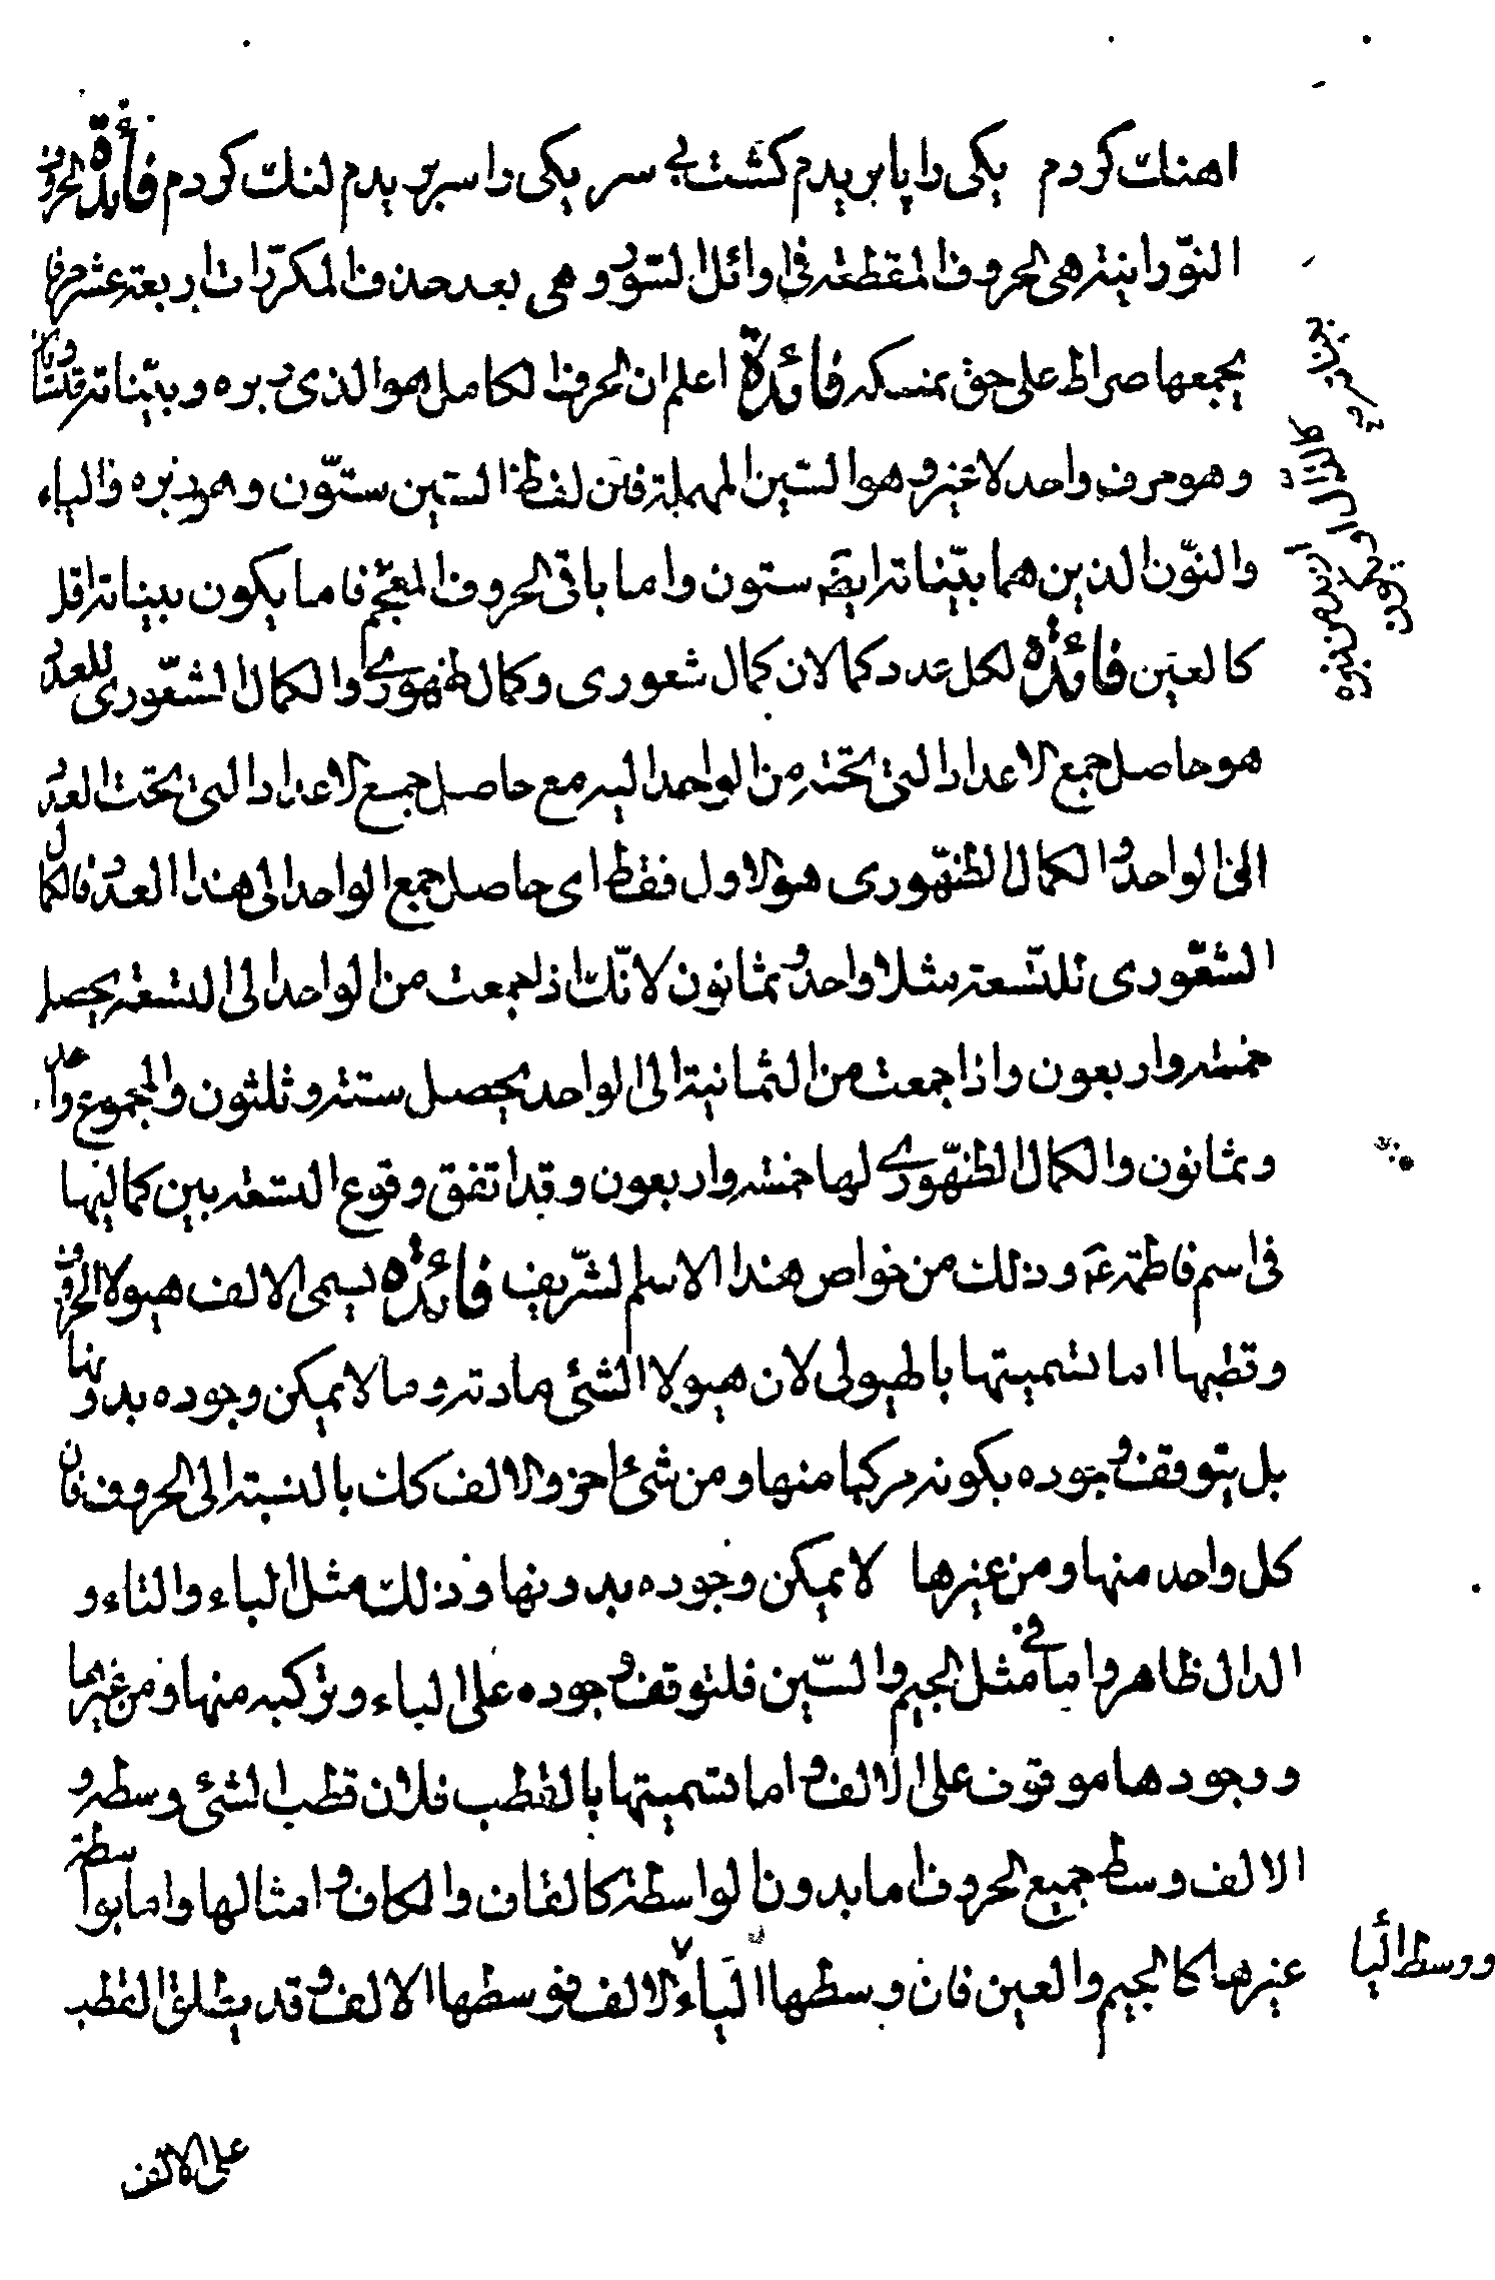 اهنك كردم يكى را پا بريدم كشت بى سر يكى را سر بريدم لنك كردم فائدة الحروف
النّورانية هى الحروف المقطعة فى اوائل السّور وهى بعد حذف المكرّرات اربعة عشر حرفا
يجمعها صراط على حق نمسكه فائدة اعلم ان الحرف الكامل هو الذى زبره وبيّناته
وهو حرف واحد لا غير وهو السّين المهملة فان لفظ السّين ستّون وهو زبره والياء
والنّون الذين هما بيّناته ايضً ستون واما باقى الحروف المعجم فاما يكون بيناته اقل
كالعين فائدة لكل عدد كمالان كمال شعورى وكمال ظهورى والكمال الشّعورى للعدد
هو حاصل جمع الاعداد التى تحته من الواحد اليه مع حاصل جمع الاعداد التى تحت العدد
الى الواحد والكمال الظّهورى هو الاول فقط اى حاصل جمع الواحد الى هذا العدد فالكمال
الشّعورى للتّسعة مثلا واحد وثمانون لانّك اذا جمعت من الواحد الى التسعة يحصل
خمسة واربعون واذا جمعت من الثمانية الى الواحد يحصل ستة وثلثون والمجموع واحد
وثمانون والكمال الظّهورى لها خمسة واربعون وقد اتفق وقوع التسعة بين كماليها
فى اسم فاطمة ع وذلك من خواص هذا الاسم الشّريف فائدة يسمى الالف هيولا الحروف
وقطبها اما تسميتها بالهيولى لان هيولا الشئ مادته وما لا يمكن وجوده بدونها
بل يتوقف وجوده بكونه مركبا منها ومن شئ اخر والالف كك بالنسبة الى الحروف فان
كل واحد منها ومن غيرها لا يمكن وجوده بدونها وذلك مثل الباء والتاء و
الدال ظاهر واما فى مثل الجيم والسّين فلتوقف وجوده على الياء وتركبه منها ومن غيرها
ووجودها موقوف على الالف واما تسميتها بالقطب فلان قطب الشئ وسطه و
الالف وسط جميع الحروف اما بدون الواسطة كالقاف والكاف وامثالها واما بواسطة
غيرها كالجيم والعين فان وسطها الياء الالف فوسطها الالف وقد يطلق القطب
ووسط اليا
على الالف